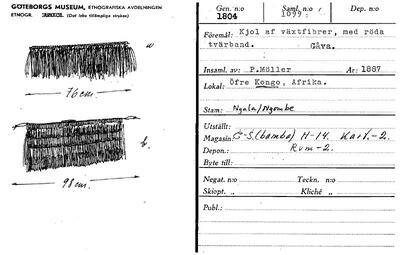 GÖTEBORGS MUSEUM, ETNOGRAFISKA AVDELNINGEN
ETNOGR. (Det icke tillämpliga strykes)
a
76 cm.
b.
98 cm.
Gen. n:o 1804
Saml. n:o 1099.
Dep. n:o
Föremål: Kjol af växtfibrer, med röda
tvärband. Gåva.
Insaml. av: P.Möller År: 1887
Lokal: Öfre Kongo, Afrika.
Stam: Ngala/Ngombe
Utställt:
Magasin: C-S.(bamba) H-14. Kart.-2.
Depon.: Rum-2.
Byte till:
Negat. n:o Teckn. n:o
Skiopt. „ Kliché „
Publ.: